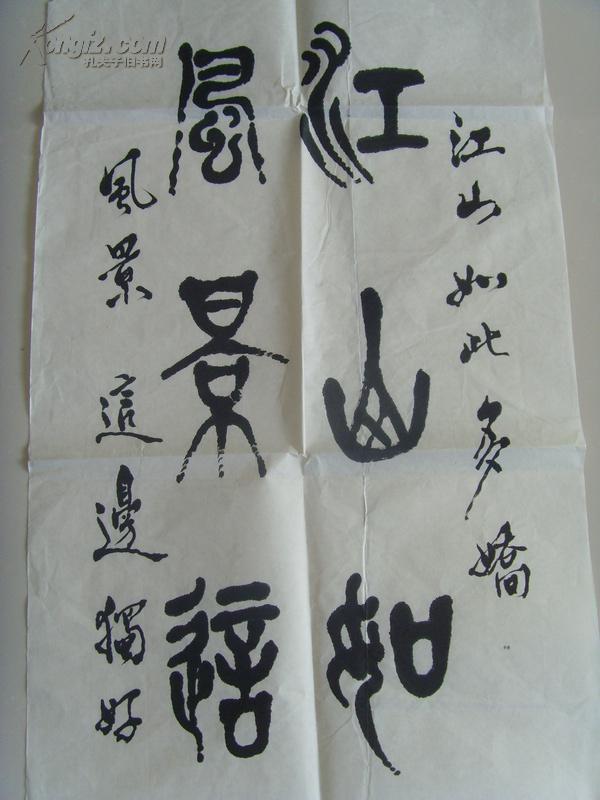 江山如此多嬌
江山如
風景這
風景這邊獨好
Kongfz.com
孔夫子旧书网